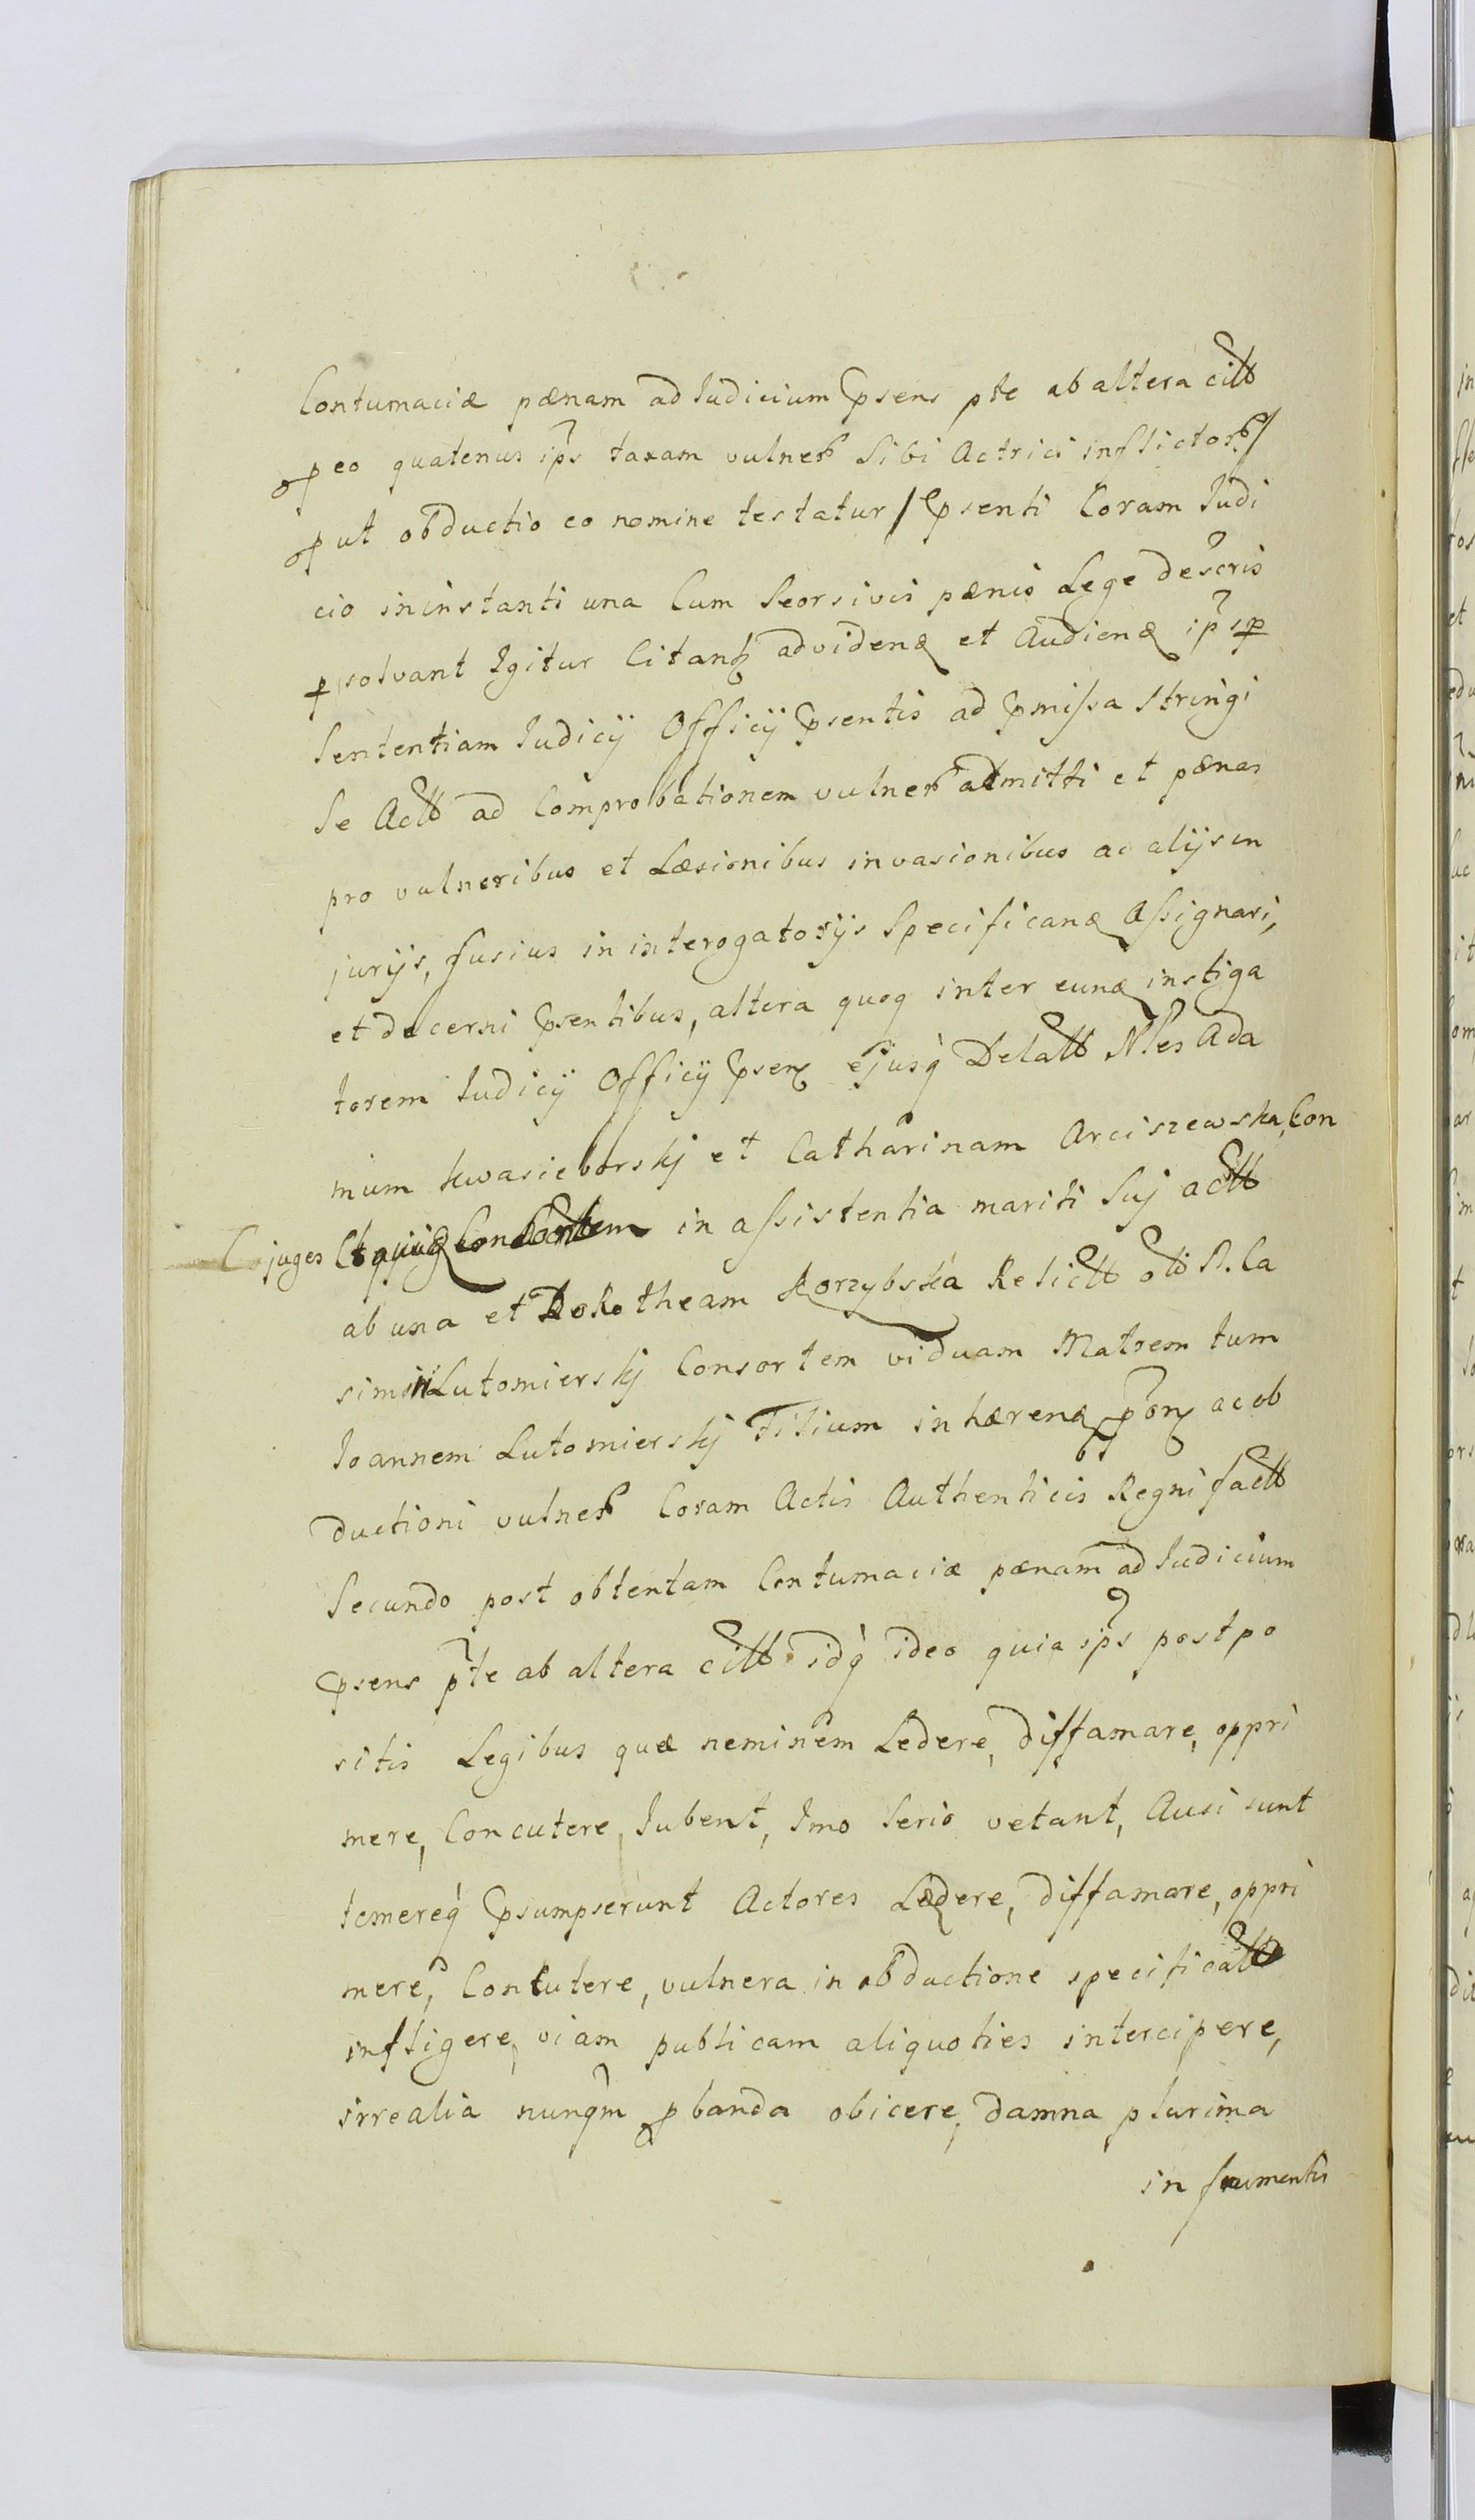 Contumaciæ pænam ad Iudicium psens pte ab altera citt
p eo quatenus ips taxam vulner Sibi Actrici inflictor/
put obductio eo nomine testatur/ psenti Coram Iudi
cio in instanti una Cum Seorsivis pænis Lege descris
p solvant Igitur Citant ad videnđ et Audienđ ips p
Sententiam Iudicij Officij psentis ad pmissa stringi
Se Actt ad Comprobationem vulner admitti et pænas
pro vulneribus et Læsionibus invasionibus ac alijs in
jurijs, fusius in interogatorijs Specificanđ Assignari,
et decerni psentibus, altera quoq inter eunđ instiga
torem Iudicij Officij psen ejusq Delatt N.les Ada
mum Kwasieborskj et Catharinam Arciszewska, Con
juges in assistentia mariti Suj actt
ab una et Dorotheam Korzybska Relictt oli N. Ca
simiri Lutomierskj Consortem viduam Matrem tum
Ioannem Lutomierskj Filium inhærenđ pon ac ob
ductioni vulner Coram Actis Authenticis Regni factt
Secundo post obtentam Contumaciæ pænam ad Iudicium
psens pte ab altera citt idq ideo quia ips postpo
sitis Legibus quæ neminem Ledere, diffamare, oppri
mere, Concutere, Iubent, Imo Serio vetant, Ausi sunt
temereq psumpserunt Actores Lædere, diffamare, oppri
mere, Concutere, vulnera in obductione specificatt
infligere, viam publicam aliquoties intercipere,
irrealia nunqm pbanda obicere, damna plurima
in frumentis